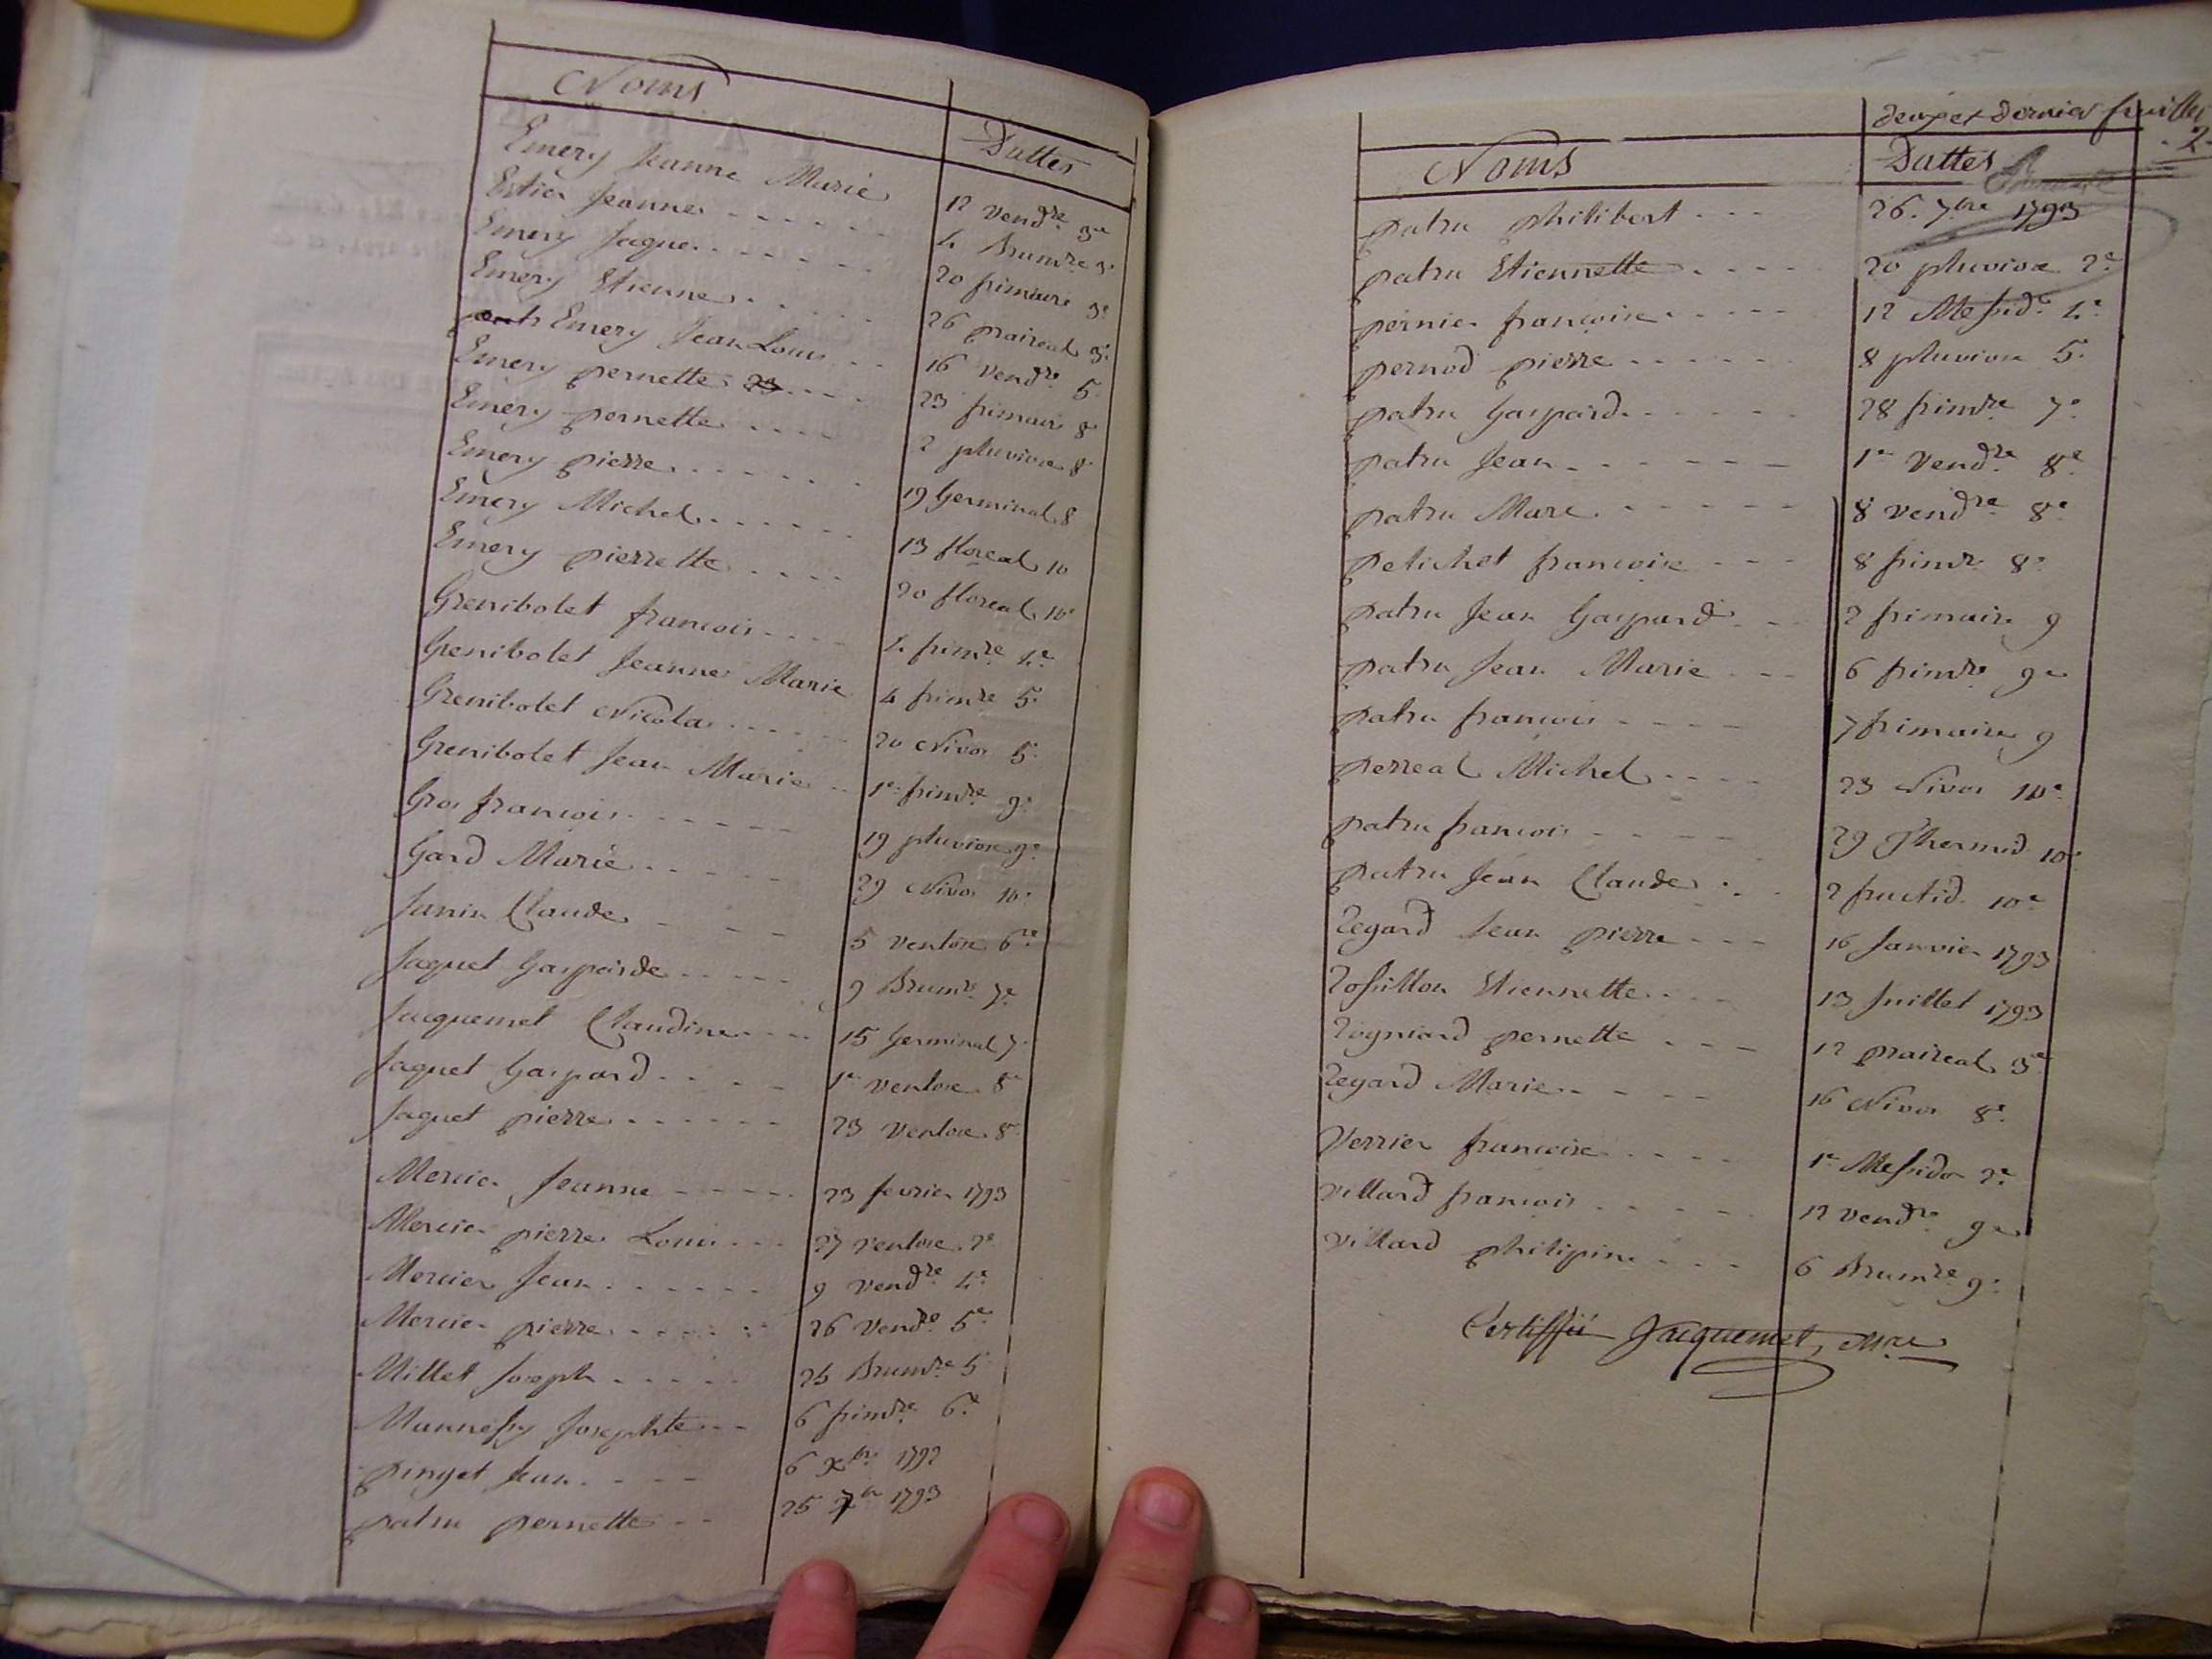 Noms Dattes
Emery Jeanne Marie 12 vendre 3e
Estier Jeanne 4 Brumre 3e
Emery Jaque 20 frimaire 3e
Emery Etienne 26 praireal 3e
Emery Jean Louis 16 vendre 5e
Emery pernette 23 frimaire 8e
Emery pernette 2 pluviose 8e
Emery pierre 19 Germinal 8
Emery Michel 13 floreal 10
Emery pierrette 20 floreal 10e
Grenibolet francois 4 frimre 4e
Grenibolet Jeanne Marie 4 frimre 5e
Grenibolet Nicolas 20 Nivos 5e
Grenibolet Jean Marie 1er frimre 9e
Gros francois 19 pluviose 9e
Gard Marie 29 Nivos 10e
Janin Claude 5 ventose 6e
Jaquet Gasparde 9 Brumre 7e
Jacquemet Claudine 15 Germinal 7e
Jaquet Gaspard 1er ventose 8e
Jaquet pierre 23 ventose 8e
Mercier Jeanne 23 fevrier 1793
Mercier pierre Louis 27 ventose 2e
Mercier Jean 9 vendre 4e
Mercier pierre 26 vendre 5e
Millet Joseph 25 Brumre 5e
Mannessy Josephte 6 frimre 6e
pinget Jean 6 xbre 1792
patru pernette 25 7bre 1793
deux et dernier feuillet
2
Noms Dattes
patru philibert 26 7bre 1793
patru Etiennette 20 pluviose 2e
pernier francoise 12 Messidr 4e
pernod pierre 8 pluviose 5e
patru Gaspard 28 frimre 7e
patru Jean 1er vendre 8e
patru Marc 8 vendre 8e
petichet francoise 8 frimre 8e
patru Jean Gaspard 2 frimaire 9
patru Jean Marie 6 frimre 9e
patru francois 7 frimaire 9
perreal Michel 23 Nivos 10e
patru francois 29 Thermid 10e
patru Jean Claude 2 fructid 10e
Regard Jean pierre 16 Janvier 1793
Rossillon Etiennette 13 Juillet 1793
Rogniard pernette 12 praireal 3e
Regard Marie 16 Nivos 8e
Verrier francoise 1er Messidor 2e
villard francois 12 vendre 9e
villard philipine 6 Brumre 9e
Certiffié Jacquemet, Mre